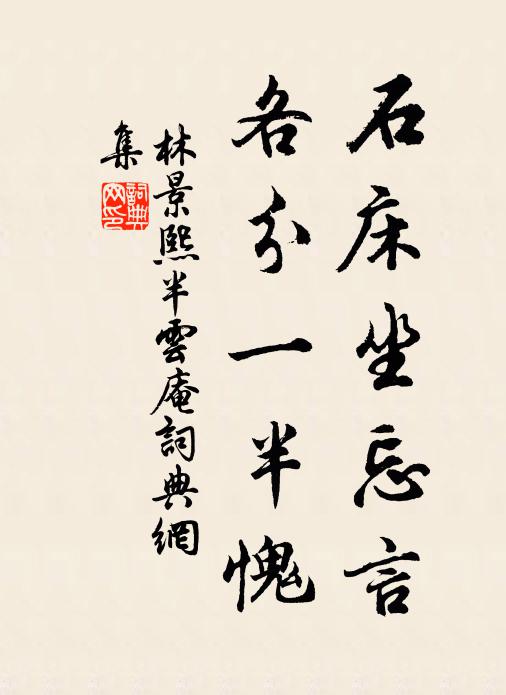 石床坐忘言
各分一半愧
林景熙半雲庵詞典網
集
詞典
网印